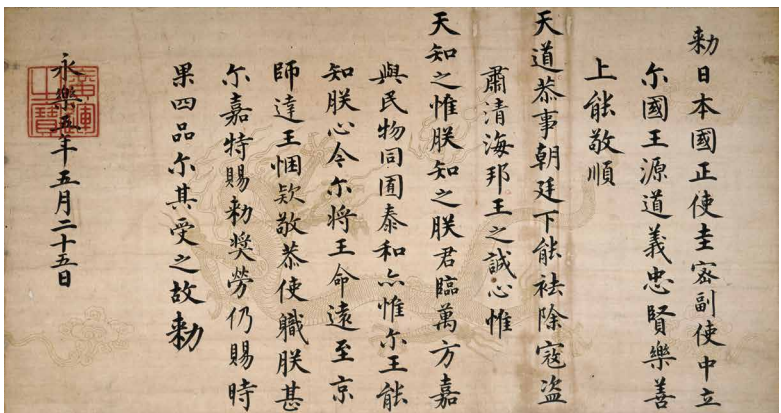 勑日本國正使圭密副使中立
尔國王源道義忠賢樂善
上能敬順
天道恭事朝廷下能祛除寇盗
肅清海邦王之誠心惟
天知之惟朕知之朕君臨萬方嘉
與民物同囿泰和亦惟尔王能
知朕心今尔將王命遠至京
師達王悃欵敬恭使職朕甚
尔嘉特賜勑奬勞仍賜時
果四品尔其受之故勑
永樂五年五月二十五日
廣運之寶